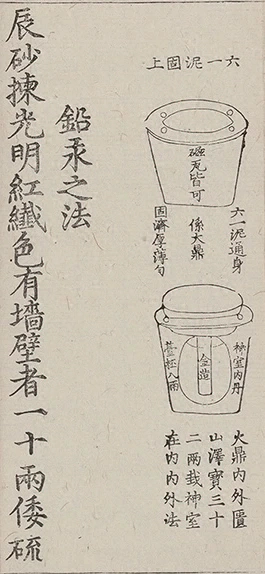 六一泥固上
磁瓦皆可
六一泥通身
係大鼎
固濟厚薄勻
神室內丹
金造
八兩
火鼎內外匱
山澤寶三十
二兩栽神室
在內內外法
鉛汞之法
辰砂揀光明紅纖色有墻壁者一十兩倭硫